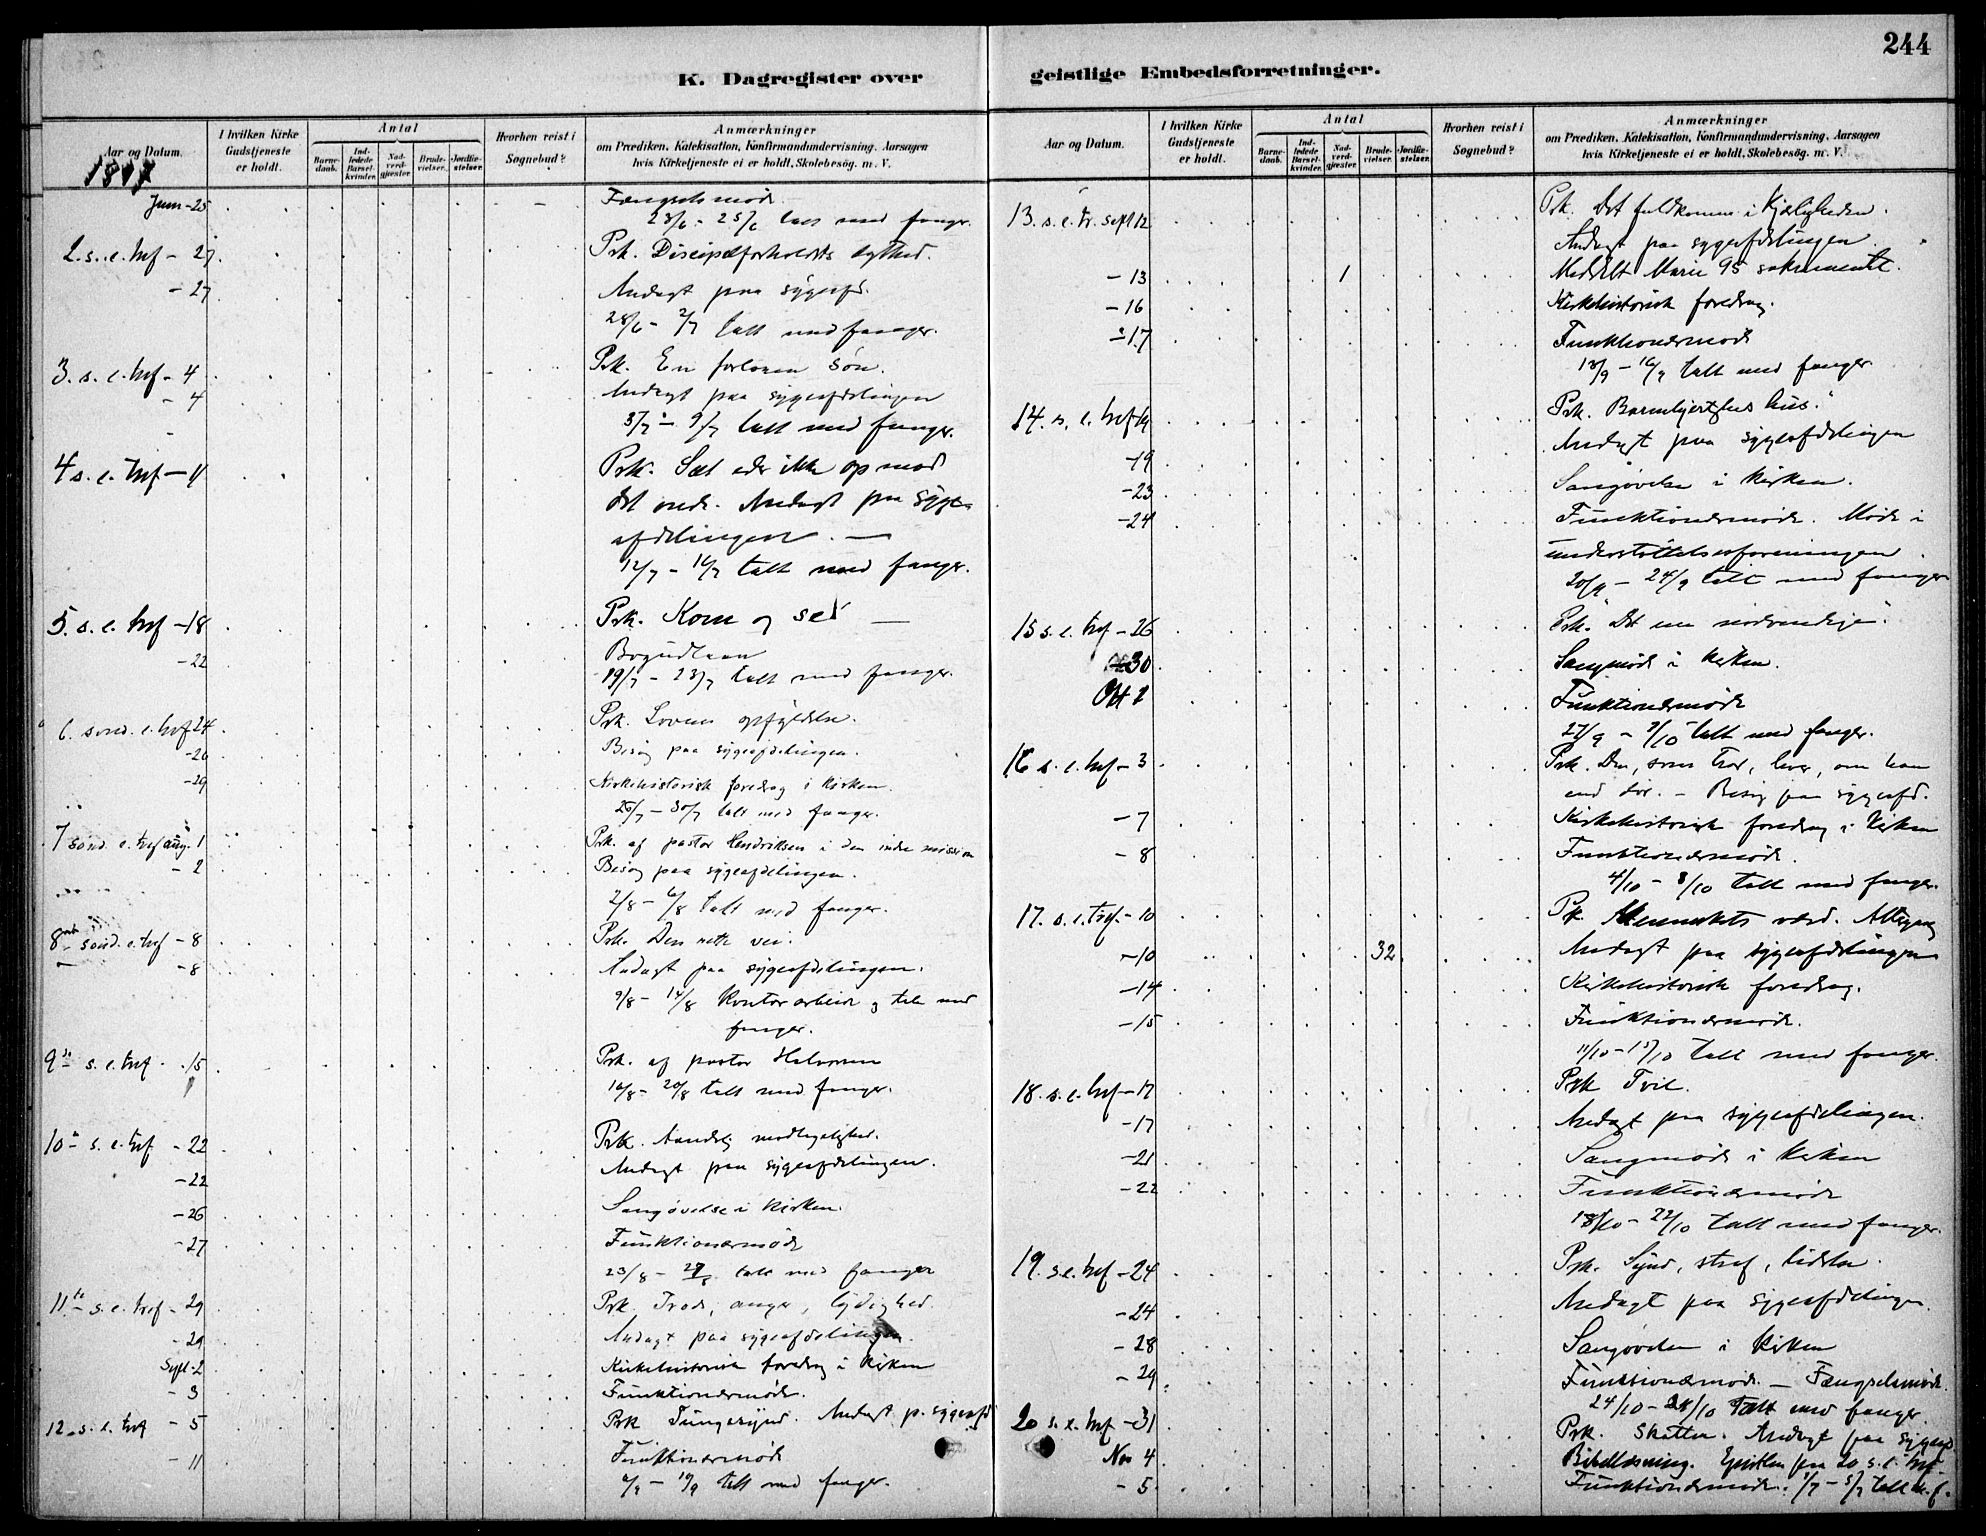 244
K. Dagregister over
Aar og Datum.
I hvilken Kirke Gudstjeneste er holdt.
Antal
Barnedaab.
Indledede Barselkvinder.
Nadverdgjæster.
Brudevielser.
Jordfæstelser.
Hvorhen reist i Sognebud?
Anmærkninger
om Prædiken, Katekisation, Konfirmandundervisning, Aarsagen
hvis Kirketjeneste ei er holdt, Skolebesög. m. V.
1897
Juni - 25 Fængselsmöde
23/6 - 25/6 talt med fanger.
2. s. e. tref - 27. Prk. Discipelforholdets
- 27 Andagt paa sygeafd.
28/6 - 2/7 talt med fanger.
3. s. e. tref - 4 Prk. En forloren sön.
- 4 Andagt paa sygeafdelingen
5/7 - 9/7 talt med fanger.
4 s. e. tref - 11 Prk. Sæt eder ikke op mod
det onde. Andagt paa syge-
afdelingen. -
12/7 - 16/7 talt med fanger.
5. s. e. tref - 18 Prk. Kom og se!
- 22 Bogudlaan
19/7 - 23/7 talt med fanger.
6. sönd. e. tref 24 Prk. Lovens opfyldelse.
- 26 Besög paa sygeafdelingen.
- 29 Kirkehistorisk foredrag i kirken.
26/7 - 30/7 talt med fanger.
7 sönd. e. tref aug. 1 Prk. af pastor Hendriksen i den indre mission
- 2 Besög paa sygeafdelingen.
2/8 - 6/8 talt med fanger.
8 sönd. e. tref - 8 Prk. Den rette vei.
- 8 Andagt paa sygeafdelingen.
9/8 - 14/8 Kontorarbeide og tale med
fanger.
9de s. e. tref - 15 Prk. af pastor Halvorsen
16/8 - 20/8 talt med fanger.
10 s. e. tref - 22 Prk. Aandelig modtagelighed.
- 22 Andagt paa sygeafdelingen.
- 26 Sangövelse i kirken.
- 27 Funktionærmöde
23/8 - 27/8 talt med fanger
11te s. e. tref - 29 Prk. Trods, anger, lydighed.
- 29 Andagt paa sygeafdelingen.
Sept - 2 Kirkehistorisk foredrag i kirken
- 3 Funktionærmöde.
12. s. e. tref - 5 Prk Tungesynd. Andagt p. sygeafd
- 11 Funktionærmöde
talt med fanger.
geistlige Embedsforretninger.
Aar og Datum.
I hvilken Kirke Gudstjeneste er holdt.
Antal
Barnedaab.
Indledede Barselkvinder.
Nadverdgjæster.
Brudevielser.
Jordfæstelser.
Hvorhen reist i Sognebud?
Anmærkninger
om Prædiken, Katekisation, Konfirmandundervisning, Aarsagen
hvis Kirketjeneste ei er holdt, Skolebesög. m. V.
13. s. e. tr. sept 12 Prk. Det fuldkomne i Kjærligheden.
Andagt paa sygeafdelingen
- 13 1 Meddelt Marie 95 sakramentet.
- 16 Kirkehistorisk foredrag.
- 17 Funktionærmöde
13/9 - 16/9 talt med fanger
14. s. e. tref 19 Prk. Barmhjertighedens hus."
Andagt paa sygeafdelingen
- 19
- 23 Sangövelse i kirken.
- 24 Funktionærmöde. Möde i
understöttelsesforeningen.
20/9 - 24/9 talt med fanger
15 s. e. tref - 26 Prk. "Det ene nödvendige".
- 30 Sangmöde i kirken.
Okt 1 Funktionærmöde
27/9 - 1/10 talt med fanger.
16 s. e. tref - 3 Prk. Den, som tror, lever, om han
end dör. - Besög paa sygeafd.
- 7 Kirkehistorisk foredrag i Kirken
- 8 Funktionærmöde.
4/10 - 8/10 talt med fanger.
17. s. e. tref. - 10 Prk. Menneskets værd. Altergang
- 10 32 Andagt paa sygeafdelingen
- 14 Kirkehistorisk foredrag.
- 15 Funktionærmöde.
11/10 - 15/10 talt med fanger.
18. s. e. tref - 17 Prk Tvil.
- 17 Andagt paa sygeafdelingen.
- 21 Sangmöde i kirken
- 22 Funktionærmöde
18/10 - 22/10 talt med fanger.
19. s. e. tref - 24 Prk. Synd, straf, lidelse.
- 24 Andagt paa sygeafdelingen
- 28 Sangövelse i kirken
- 29 Funktionærmöde - Fængselsmöde.
24/10 - talt med fanger
20 s. e. tref - 31 Prk. Skatten. Andagt paa sygeafd
Nov 4 Bibellæsning. Epistlen paa 20 s. e. tref
- 5 Funktionærmöde. talt m. f.